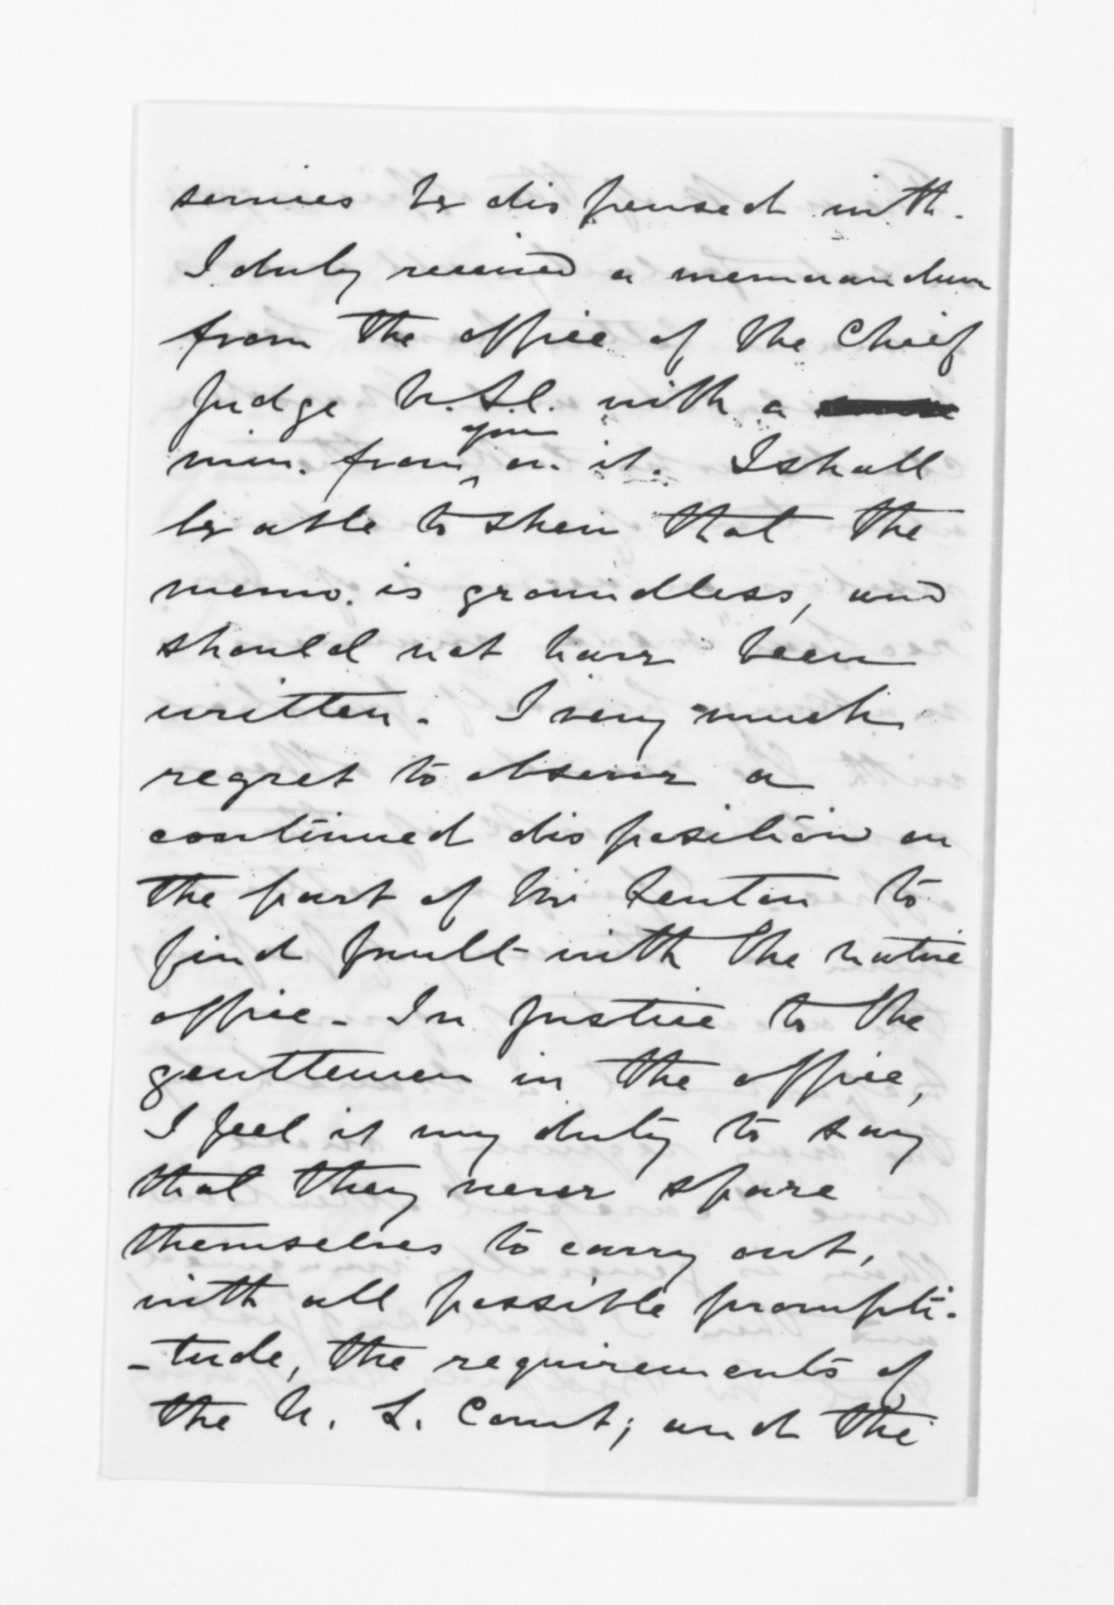 services be dispensed with.
I duly received a memorandum
from the office of the Chief
Judge N.L.C. with a
min. from you on it. I shall
be able to shew that the
memo. is groundless, and
should not have been
written. I very much
regret to observe a
continued disposition on
the part of Mr Fenton to
find fault with the native
office. In justice to the
gentlemen in the office,
I feel it my duty to say
that they never spare
themselves to carry out,
with all possible prompti-
-tude, the requirements of
the N. L. Court; and the